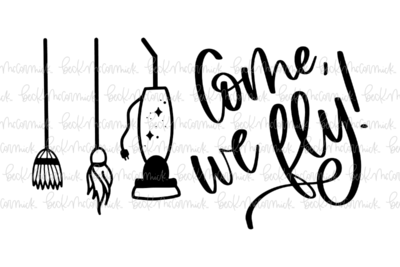 Come,
we fly!